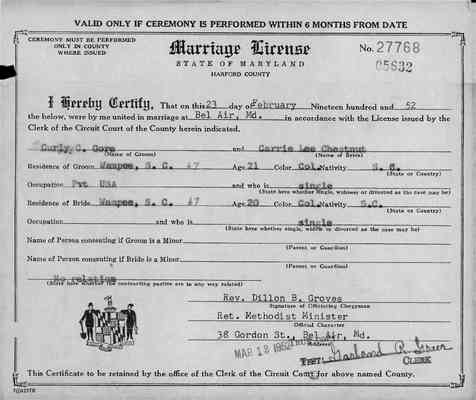 VALID ONLY IF CEREMONY IS PERFORMED WITHIN 6 MONTHS FROM DATE
CEREMONY MUST BE PERFORMED
ONLY IN COUNTY
WHERE ISSUED
Marriage License
STATE OF MARYLAND
HARFORD COUNTY
No. 27768
05632
I Hereby Certify, That on this 23 day of February Nineteen hundred and 52
the below, were by me united in marriage at Bel Air, Md. in accordance with the License issued by the
Clerk of the Circuit Court of the County herein indicated.
Curly C. Gore and Carrie Lee Chestnut
(Name of Groom) (Name of Bride)
Residence of Groom Wampee, S. C. #7 Age 21 Color Col. Nativity S. C.
(State or Country)
Occupation Pvt USA and who is single
(State here whether single, widower or divorced as the case may be)
Residence of Bride Wampee, S. C. #7 Age 20 Color Col. Nativity S.C.
(State or Country)
Occupation and who is single
(State here whether single, widow or divorced as the case may be)
Name of Person consenting if Groom is a Minor
(Parent or Guardian)
Name of Person consenting if Bride is a Minor
(Parent or Guardian)
No relation
(State here whether the contracting parties are in any way related)
Rev. Dillon B. Groves
Signature of Officiating Clergyman
Ret. Methodist Minister
Official Character
38 Gordon St., Bel Air, Md.
MAR 18 1952
Test: Garland R. Greer
CLERK
This Certificate to be retained by the office of the Clerk of the Circuit Court for above named County.